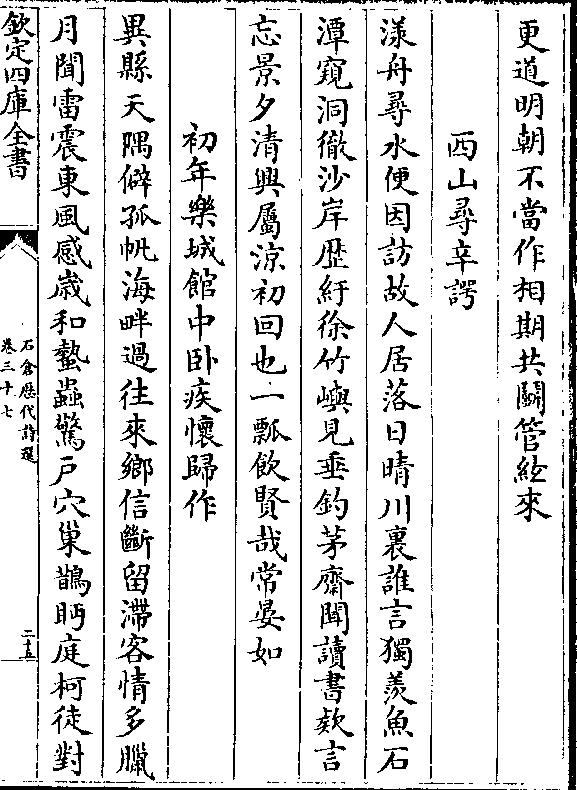 更道明朝不當作相期共鬭管絃來
西山尋辛諤
漾舟尋水便因訪故人居落日晴川裏誰言獨羨魚石
潭窺洞徹沙岸歴紆徐竹嶼見垂釣茅齋聞讀書欵言
忘景夕清興屬涼初回也一瓢飲賢哉常晏如
初年樂城館中卧疾懷歸作
異縣天隅僻孤帆海畔過往來鄉信斷留滯客情多臘
月聞雷震東風感歳和蟄蟲驚戸穴巢鵲眄庭柯徒對
欽定四庫全書
石倉歴代詩選
卷三十七
二十五